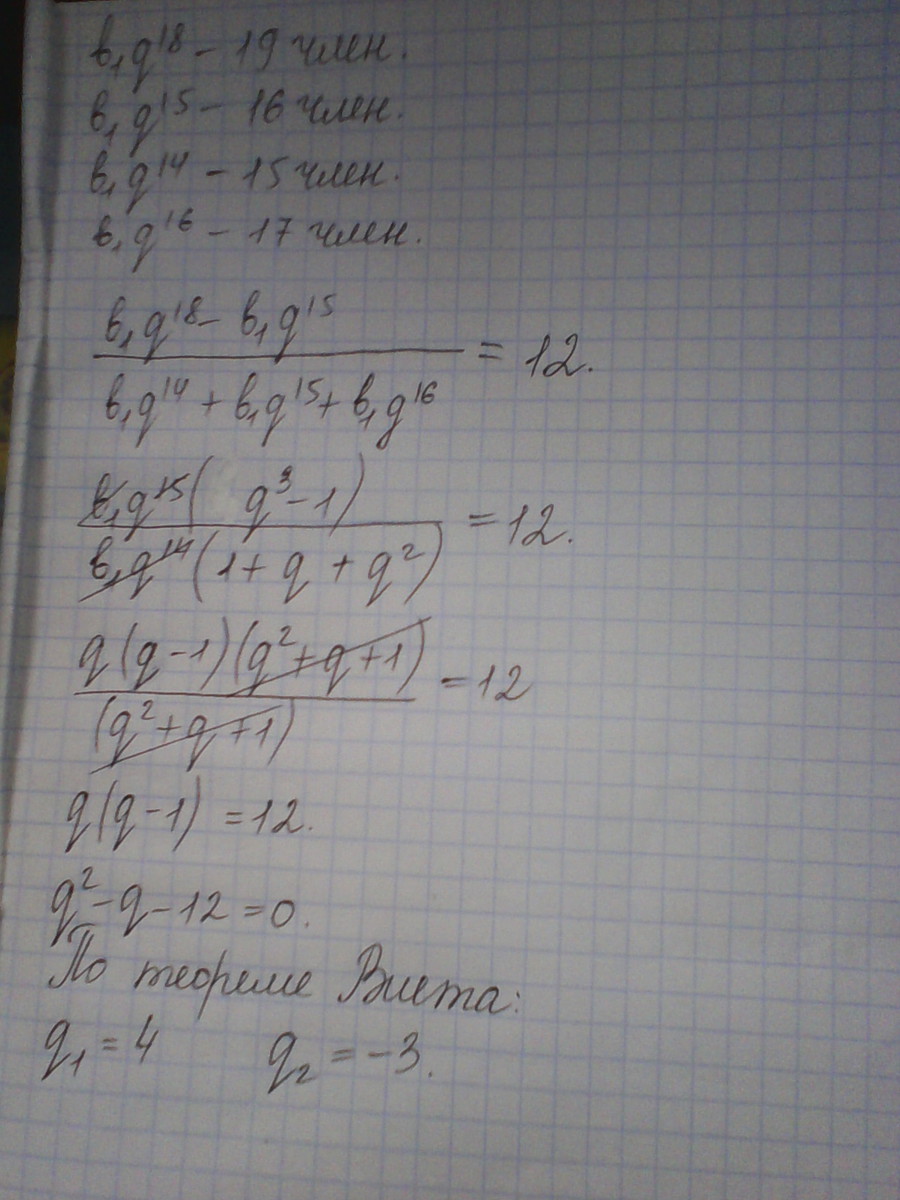 b₁q¹⁸ – 19 член.
b₁q¹⁵ – 16 член.
b₁q¹⁴ – 15 член.
b₁q¹⁶ – 17 член.
b₁q¹⁸ – b₁q¹⁵
= 12.
b₁q¹⁴ + b₁q¹⁵ + b₁q¹⁶
b₁q¹⁵( q³ – 1)
= 12.
b₁q¹⁴(1 + q + q²)
q(q – 1)(q² + q + 1)
= 12
(q² + q + 1)
q(q – 1) = 12.
q² – q – 12 = 0.
По теореме Виета:
q₁ = 4 q₂ = –3.